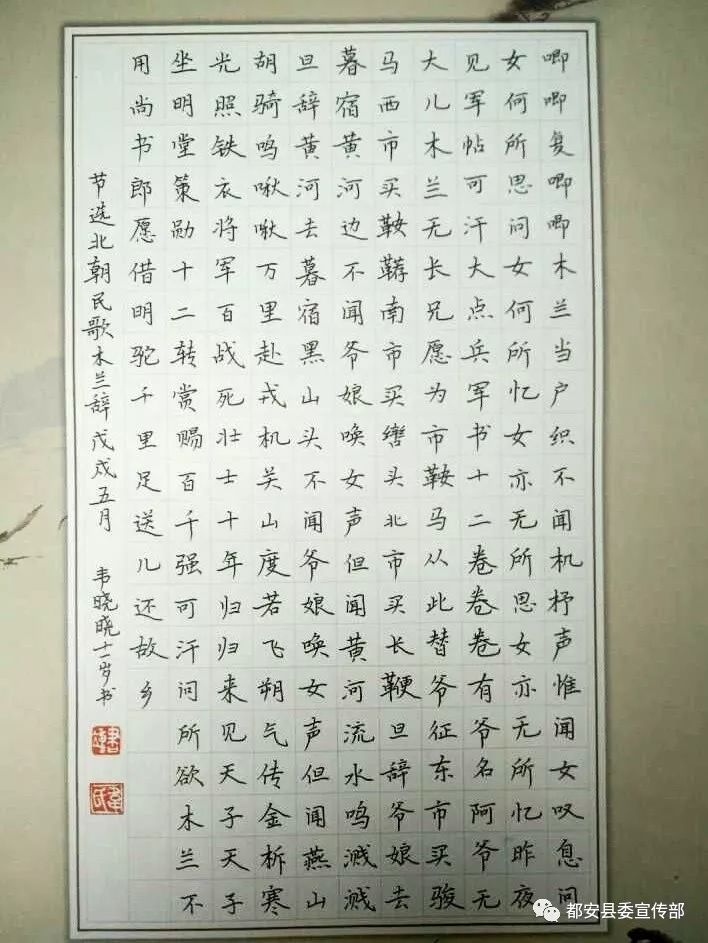 唧唧复唧唧木兰当户织不闻机杼声惟闻女叹息问
女何所思问女何所忆女亦无所思女亦无所忆昨夜
见军帖可汗大点兵军书十二卷卷卷有爷名阿爷无
大儿木兰无长兄愿为市鞍马从此替爷征东市买骏
马西市买鞍鞯南市买辔头北市买长鞭旦辞爷娘去
暮宿黄河边不闻爷娘唤女声但闻黄河流水鸣溅溅
旦辞黄河去暮宿黑山头不闻爷娘唤女声但闻燕山
胡骑鸣啾啾万里赴戎机关山度若飞朔气传金柝寒
光照铁衣将军百战死壮士十年归归来见天子天子
坐明堂策勋十二转赏赐百千强可汗问所欲木兰不
用尚书郎愿借明驼千里足送儿还故乡
节选北朝民歌木兰辞戊戌五月 韦晓晓十一岁书
都安县委宣传部